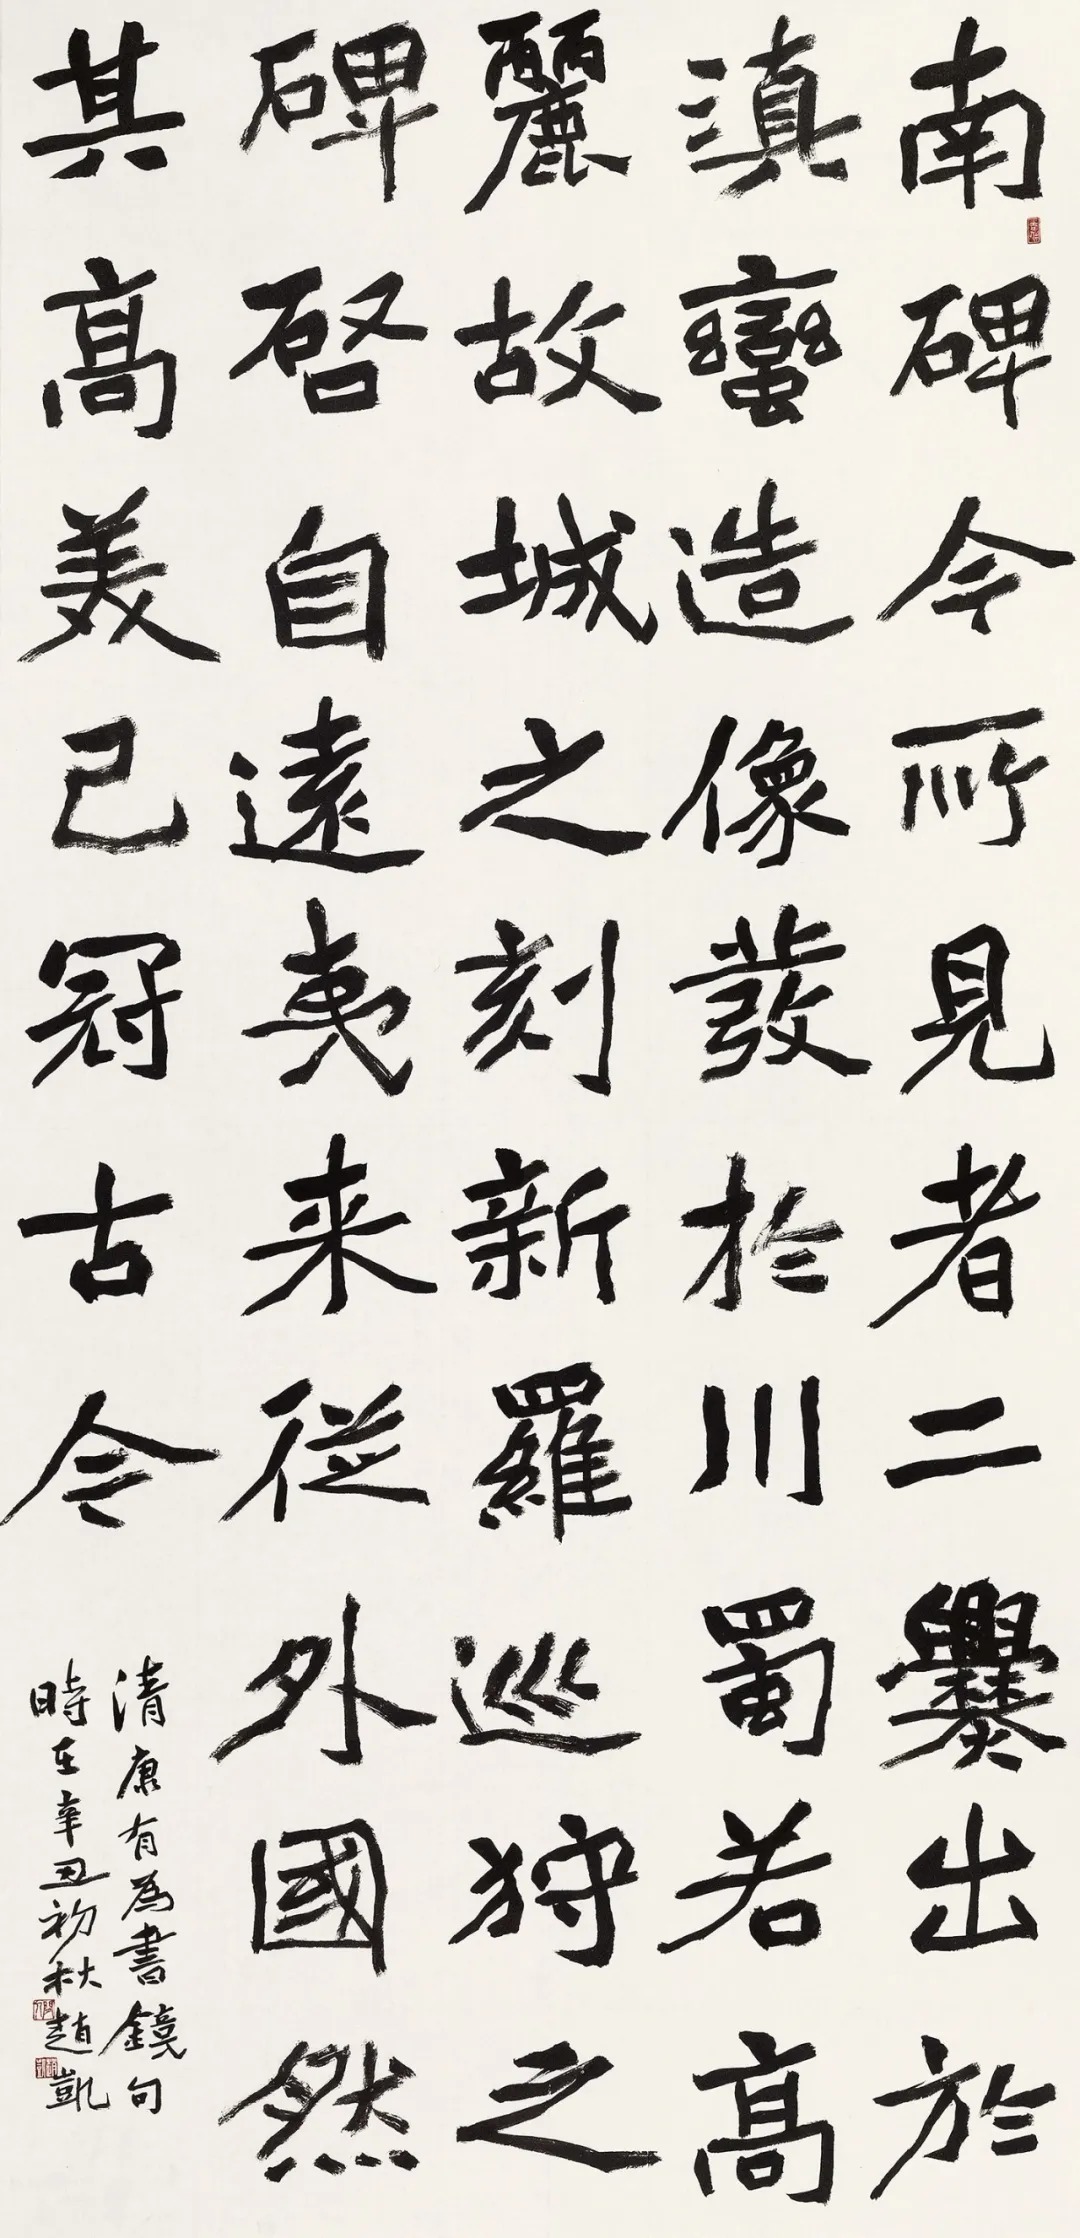 南碑今所見者二爨出於
滇蠻造像發於川蜀若高
麗故城之刻新羅巡狩之
碑啓自遠夷来從外國然
其高美已冠古今
清康有為書鏡句
時在辛丑初秋趙凱